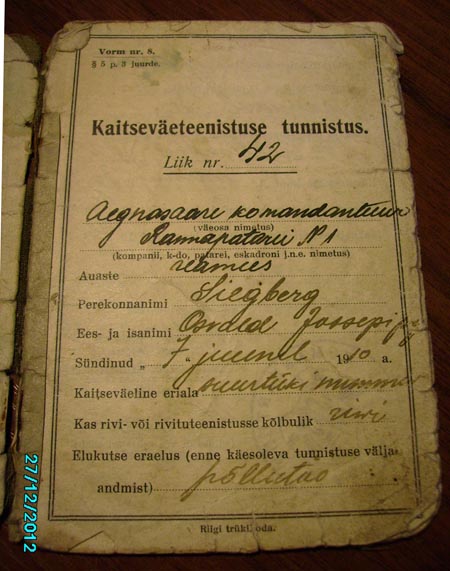 Vorm nr. 8.
§ 5 p. 3 juurde.
Kaitseväeteenistuse tunnistus.
Liik nr. 42
Aegnasaare komandantuur
(väeosa nimetus)
Rannapatarei N 1
(kompanii, k-do, patarei, eskadroni j.n.e. nimetus)
Auaste reamees
Perekonnanimi Siegberg
Ees- ja isanimi Osvald Joosepi
Sündinud „ 7 " juunil 1910 a.
Kaitseväeline eriala suurtüki nummer
Kas rivi- või rivituteenistusse kõlbulik rivi
Elukutse eraelus (enne käesoleva tunnistuse välja-
andmist) põllutöö
Riigi trükik oda.
27/12/2012